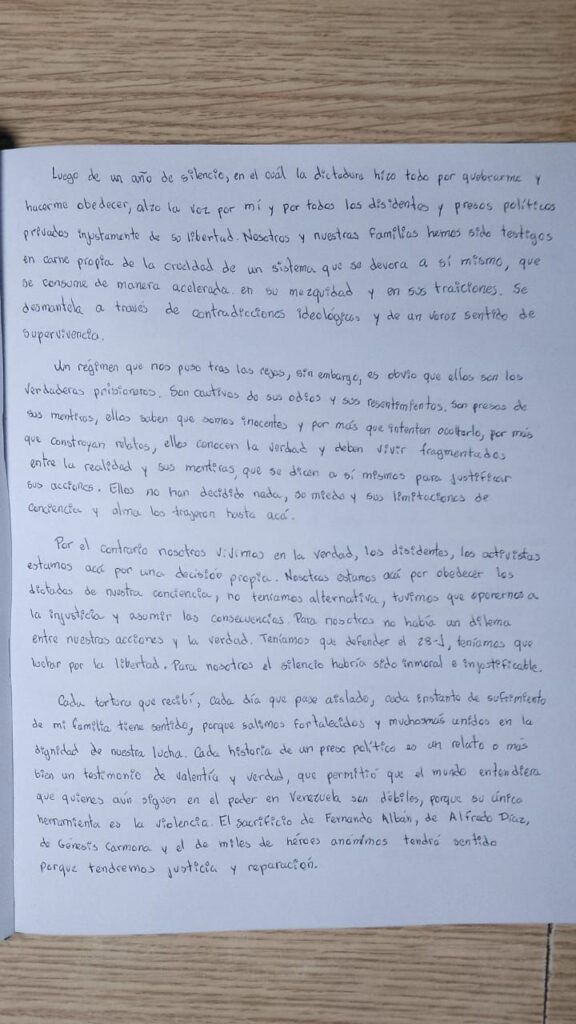 Luego de un año de silencio, en el cuál la dictadura hizo todo por quebrarme y
hacerme obedecer, alzo la voz por mí y por todos los disidentes y presos políticos
privados injustamente de su libertad. Nosotros y nuestras familias hemos sido testigos
en carne propia de la crueldad de un sistema que se devora a sí mismo, que
se consume de manera acelerada en su mezquindad y en sus traiciones. Se
desmantela a través de contradicciones ideológicas y de un voraz sentido de
supervivencia.
Un régimen que nos puso tras las rejas, sin embargo, es obvio que ellos son los
verdaderos prisioneros. Son cautivos de sus odios y sus resentimientos. Son presos de
sus mentiras, ellos saben que somos inocentes y por más que intenten ocultarlo, por más
que construyan relatos, ellos conocen la verdad y deben vivir fragmentados
entre la realidad y sus mentiras, que se dicen a sí mismos para justificar
sus acciones. Ellos no han decidido nada, su miedo y sus limitaciones de
conciencia y alma los trajeron hasta acá.
Por el contrario nosotros vivimos en la verdad, los disidentes, los activistas
estamos acá por una decisión propia. Nosotros estamos acá por obedecer los
dictados de nuestra conciencia, no teníamos alternativa, tuvimos que oponernos a
la injusticia y asumir las consecuencias. Para nosotros no había un dilema
entre nuestras acciones y la verdad. Teníamos que defender el 28-J, teníamos que
luchar por la libertad. Para nosotros el silencio habría sido inmoral e injustificable.
Cada tortura que recibí, cada día que pase aislado, cada instante de sufrimiento
de mi familia tiene sentido, porque salimos fortalecidos y mucho más unidos en la
dignidad de nuestra lucha. Cada historia de un preso político es un relato o más
bien un testimonio de valentía y verdad, que permitió que el mundo entendiera
que quienes aún siguen en el poder en Venezuela son débiles, porque su único
herramienta es la violencia. El sacrificio de Fernando Albán, de Alfredo Díaz,
de Génesis Carmona y el de miles de héroes anónimos tendrá sentido
porque tendremos justicia y reparación.